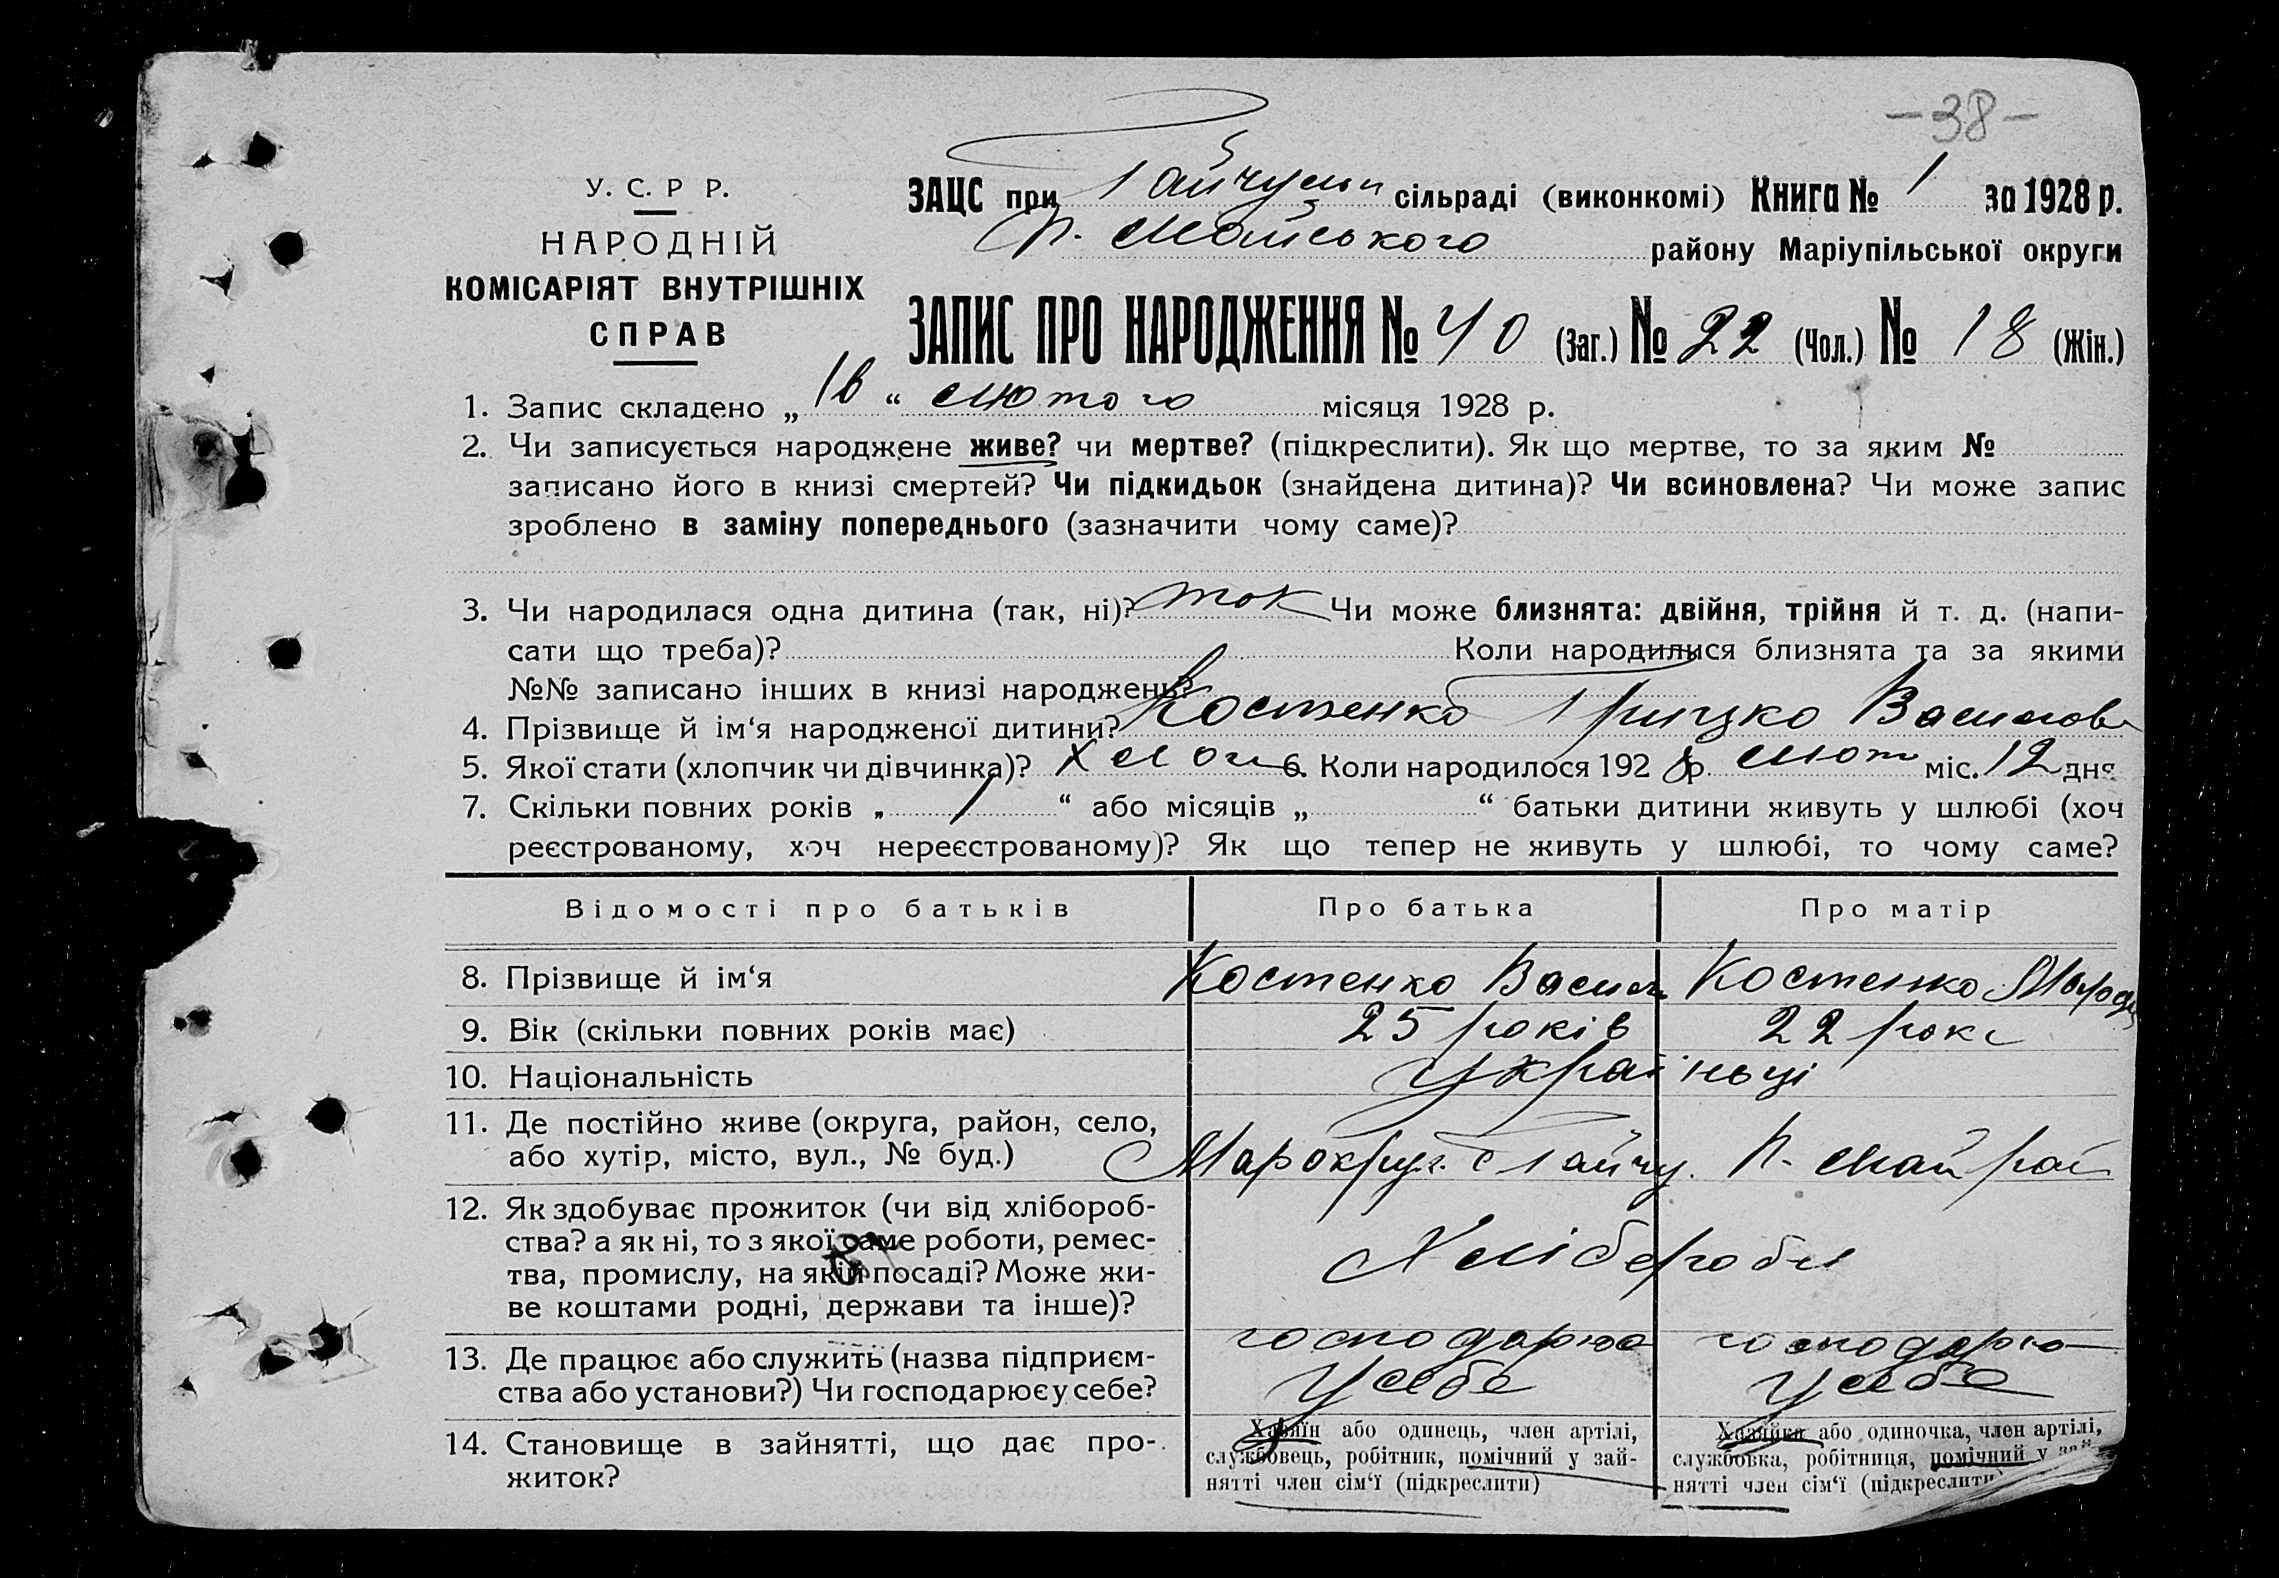 -38-
У. С. Р Р.
НАРОДНІЙ
КОМІСАРІЯТ ВНУТРІШНІХ
СПРАВ
ЗАЦС при Гайчульи сільраді (виконкомі) Книга № 1 за 1928 р.
району Маріупільської округи
ЗАПИС ПРО НАРОДЖЕННЯ № 40 (Заг.) № 22 (Чол.) № 18 (Жін.)
1. Запис складено „ “ лютого місяця 1928 р.
2. Чи записується народжене живе? чи мертве? (підкреслити). Як що мертве, то за яким №
записано його в книзі смертей? Чи підкидьок (знайдена дитина)? Чи всиновлена? Чи може запис
зроблено в заміну попереднього (зазначити чому саме)?
3. Чи народилася одна дитина (так, ні)? так Чи може близнята: двійня, трійня й т. д. (напи-
сати що треба)? Коли народилися близнята та за якими
№№ записано інших в книзі народжень?
4. Прізвище й ім‘я народженої дитини? Костенко Грицко Васильов
5. Якої стати (хлопчик чи дівчинка)? Хлоп 6. Коли народилося 1928 р. лют міс. 12 дня
7. Скільки повних років „ 1 “ або місяців „ “ батьки дитини живуть у шлюбі (хоч
реєстрованому, хоч нереєстрованому)? Як що тепер не живуть у шлюбі, то чому саме?
Відомості про батьків Про батька Про матір
8. Прізвище й ім‘я Костенко Василь Костенко
9. Вік (скільки повних років має) 25 років 22 рокі
10. Національність Україньці
11. Де постійно живе (округа, район, село,
або хутір, місто, вул., № буд.) Марокруг. с Гайчу. П-Май рай
12. Як здобуває прожиток (чи від хлібороб-
ства? а як ні, то з якої саме роботи, ремес-
тва, промислу, на якій посаді? Може жи-
ве коштами родні, держави та інше)? Хліберобы
13. Де працює або служить (назва підприєм-
ства або установи?) Чи господарює у себе? господарюе у себе господарюе у себе
14. Становище в зайнятті, що дає про-
житок?
Хазяїн або одинець, член артілі,
службовець, робітник, помічний у зай-
нятті член сім‘ї (підкреслити)
Хазяйка або одиночка, член артілі,
службовка, робітниця, помічний у зай-
нятті член сім‘ї (підкреслити)